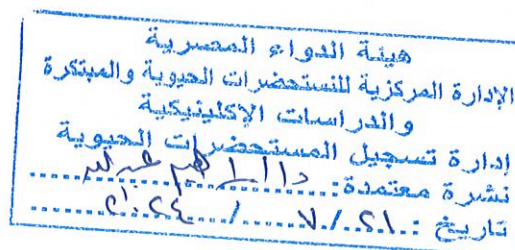 هيئة الدواء المصرية
الإدارة المركزية للمستحضرات الحيوية والمبتكرة
والدراسات الإكلينيكية
إدارة تسجيل المستحضرات الحيوية
نشرة معتمدة:
تاريخ :